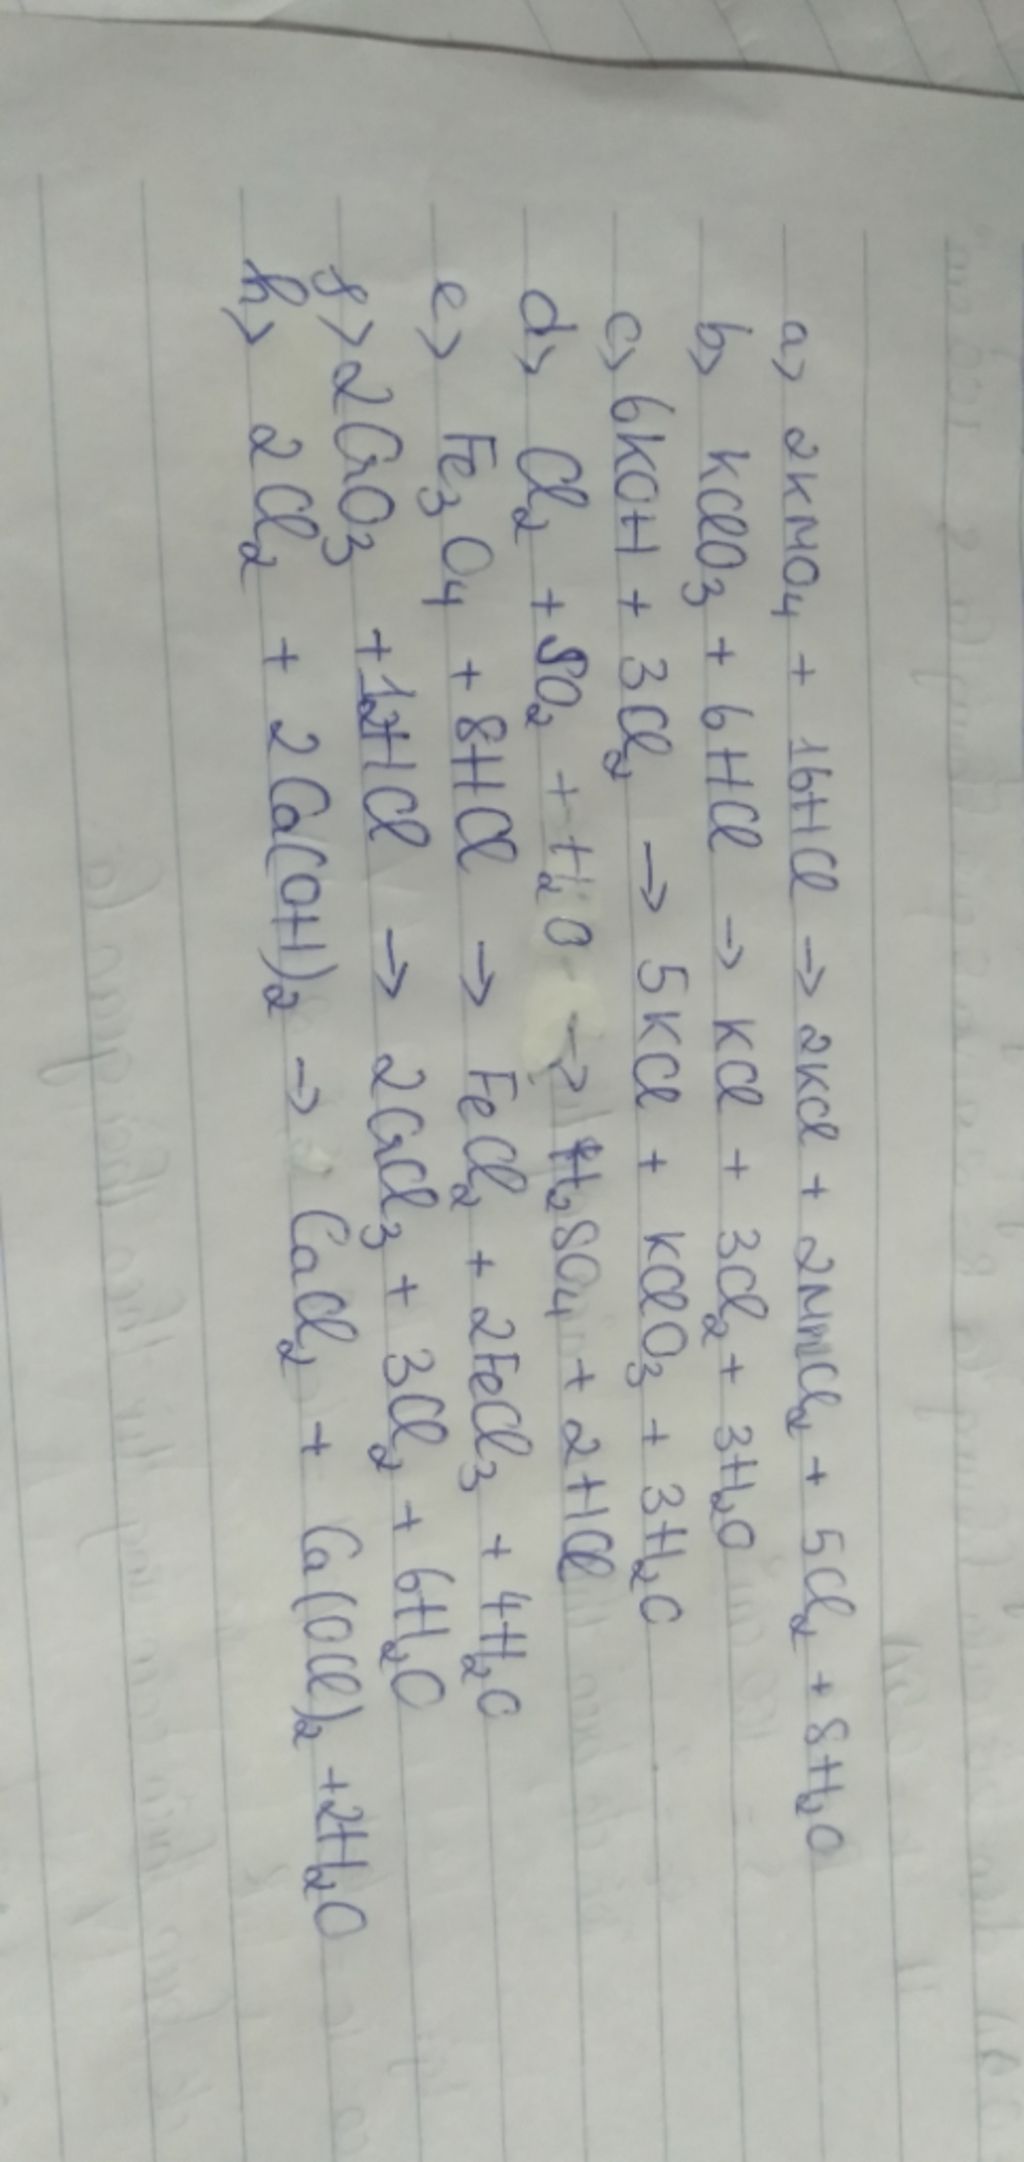 a> 2KMO4 + 16HCl → 2KCl + 2MnCl2 + 5Cl2 + 8H2O
b> KClO3 + 6HCl → KCl + 3Cl2 + 3H2O
c> 6KOH + 3Cl2 → 5KCl + KClO3 + 3H2O
d> Cl2 + SO2 + H2O → H2SO4 + 2HCl
e> Fe3O4 + 8HCl → FeCl2 + 2FeCl3 + 4H2O
f> 2CrO3 + 12HCl → 2CrCl3 + 3Cl2 + 6H2O
h> 2Cl2 + 2Ca(OH)2 → CaCl2 + Ca(OCl)2 + 2H2O